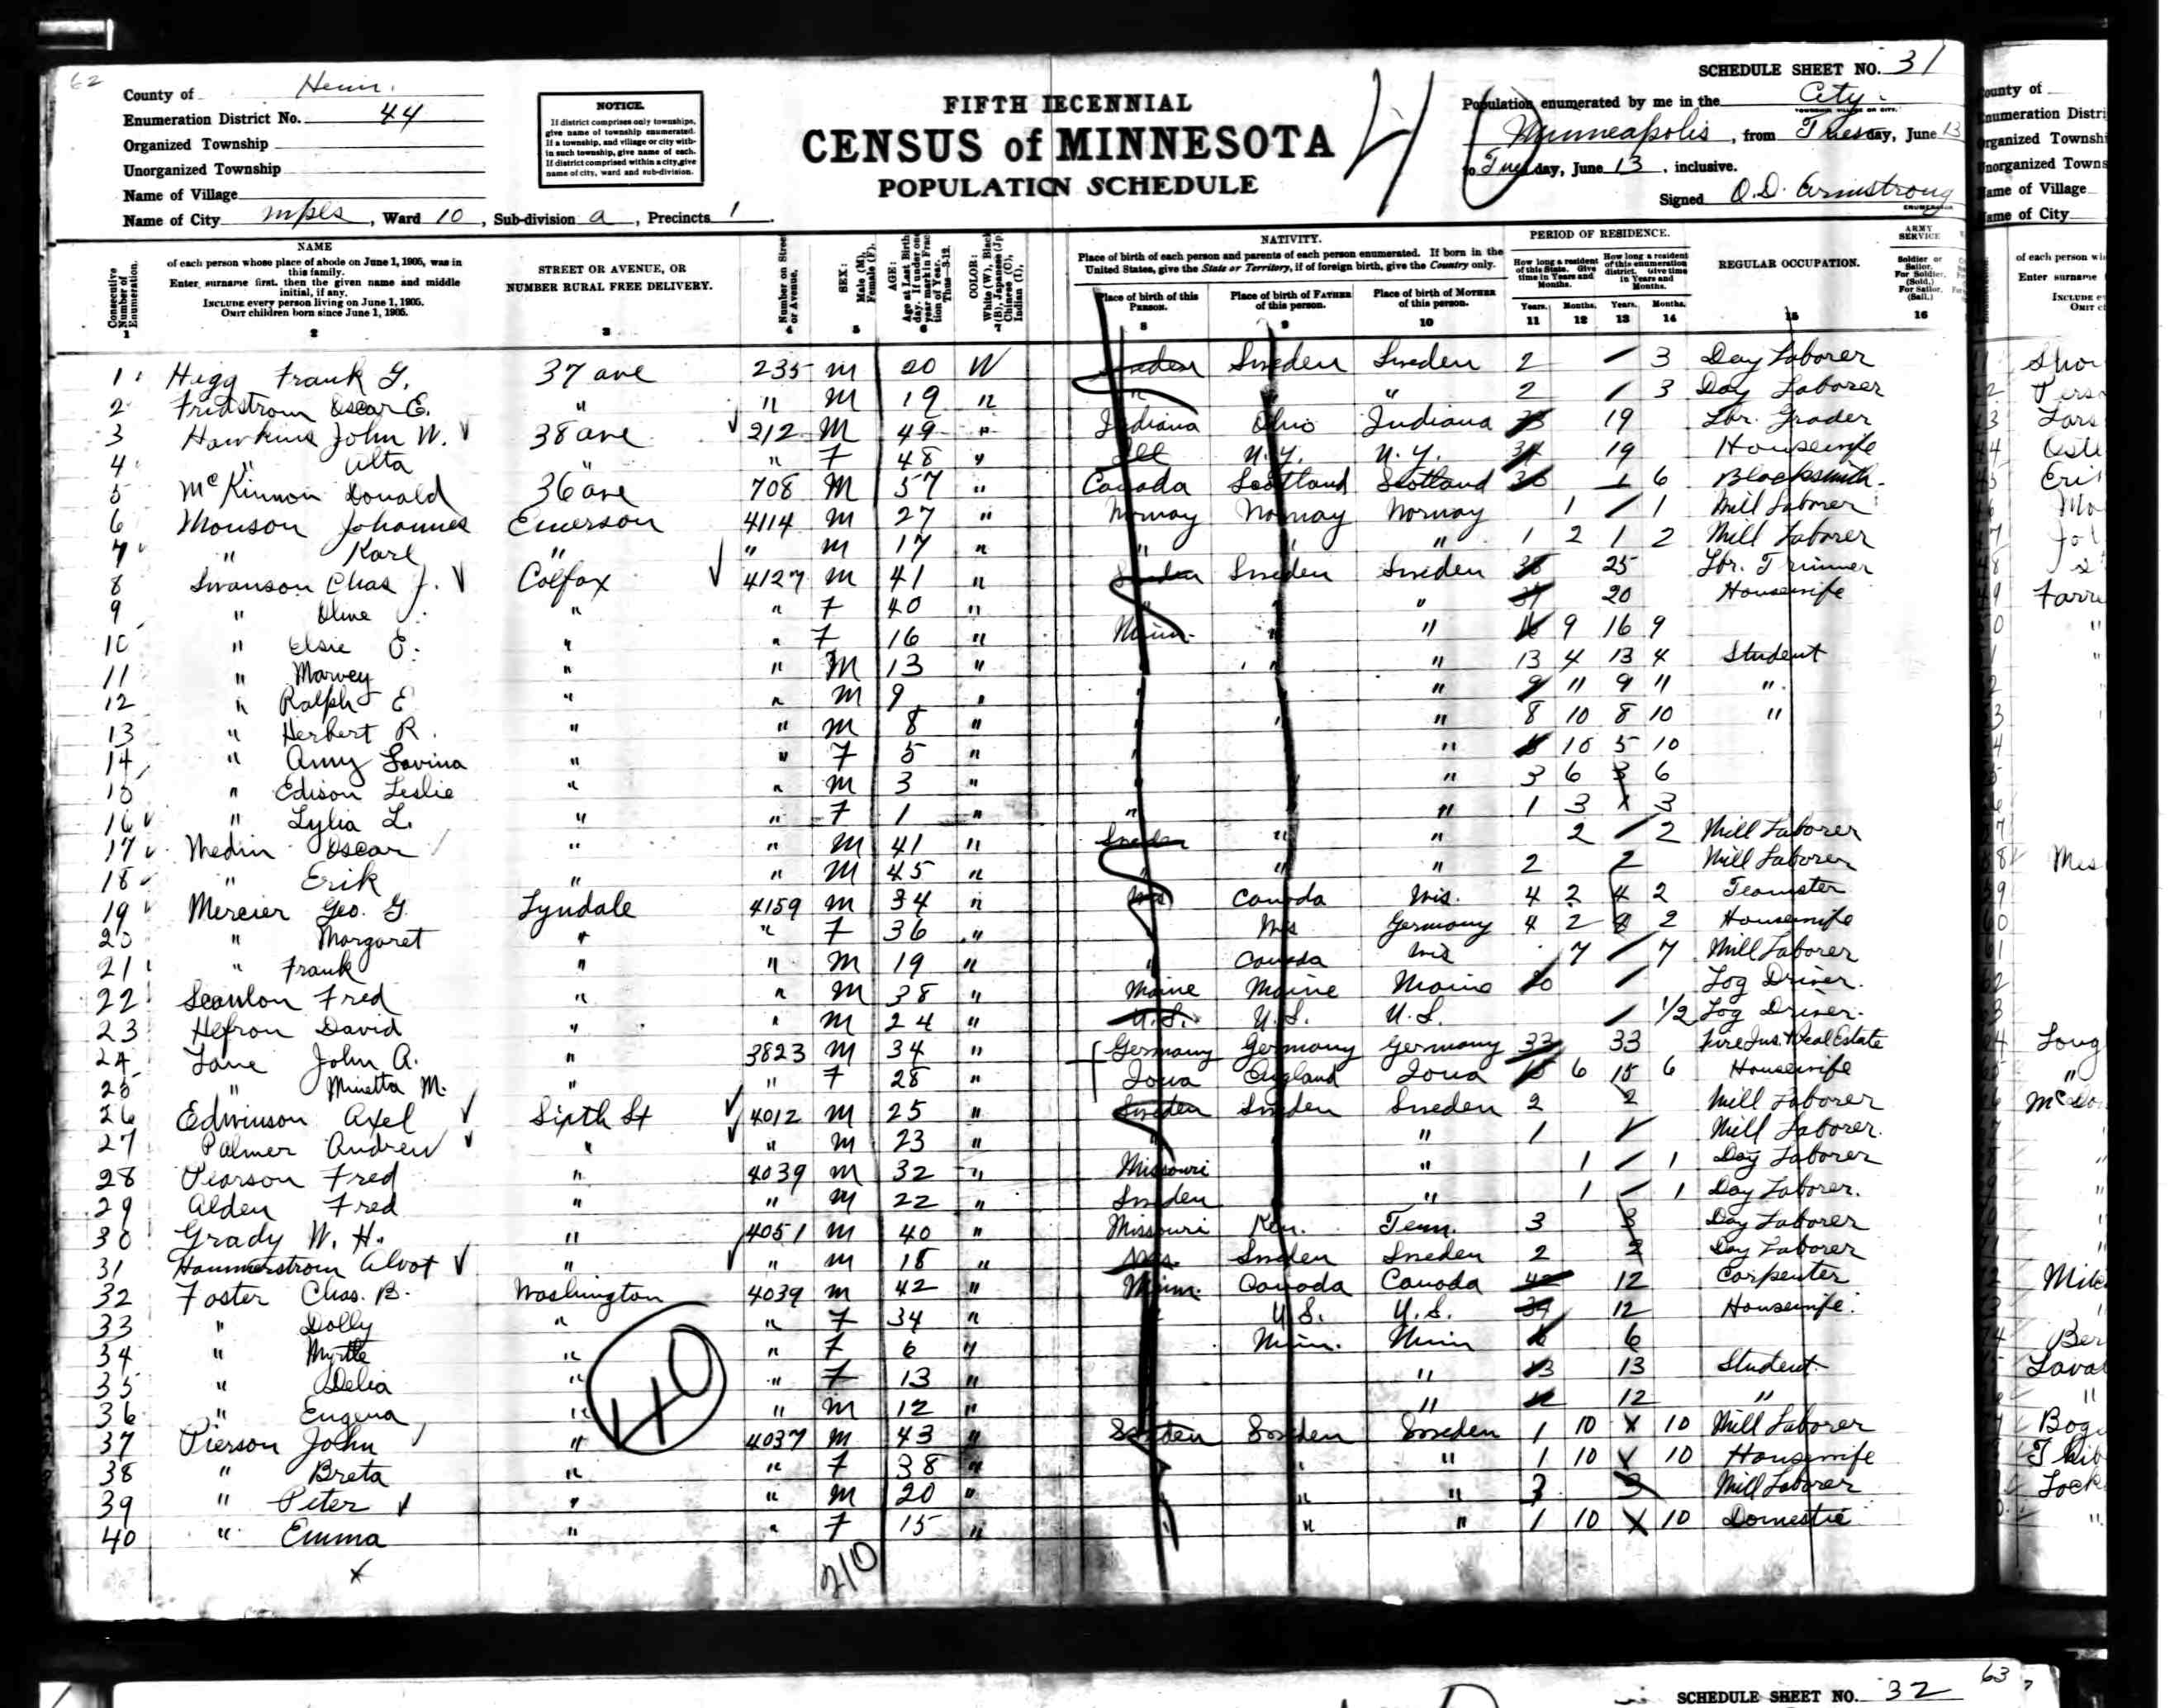 62
SCHEDULE SHEET NO. 31
County of Henn.
Enumeration District No. 44
Organized Township
Unorganized Township
Name of Village
Name of City Mpls, Ward 10, Sub-division a, Precincts 1.
NOTICE.
If district comprises only townships,
give name of township enumerated.
If a township, and village or city with-
in such township, give name of each.
If district comprised within a city, give
name of city, ward and sub-division.
FIFTH DECENNIAL
CENSUS of MINNESOTA
POPULATION SCHEDULE
Population enumerated by me in the City
TOWNSHIP, VILLAGE OR CITY.
Minneapolis, from Tuesday, June 13
to Tuesday, June 13, inclusive.
Signed O. D. Armstrong
ENUMERATOR
Consecutive Number of Enumeration. 1
NAME
of each person whose place of abode on June 1, 1905, was in
this family.
Enter surname first, then the given name and middle
initial, if any.
INCLUDE every person living on June 1, 1905.
OMIT children born since June 1, 1905.
2
STREET OR AVENUE, OR
NUMBER RURAL FREE DELIVERY.
3
Number on Street or Avenue. 4
SEX: Male (M), Female (F). 5
AGE: Age at Last Birthday. If under one year mark in Fraction of Year. Thus—3-12. 6
COLOR: White (W), Black (B), Japanese (Jp), Chinese (C), Indian (I). 7
NATIVITY.
Place of birth of each person and parents of each person enumerated. If born in the
United States, give the State or Territory, if of foreign birth, give the Country only.
Place of birth of this PERSON. 8
Place of birth of FATHER of this person. 9
Place of birth of MOTHER of this person. 10
PERIOD OF RESIDENCE.
How long a resident of this State. Give time in Years and Months.
How long a resident of this enumeration district. Give time in Years and Months.
Years. Months. Years. Months.
11 12 13 14
REGULAR OCCUPATION.
15
ARMY SERVICE
Soldier or Sailor. For Soldier, (Sold.) For Sailor, (Sail.)
16
1 Hegg Frank G. 37 ave 235 M 20 W Sweden Sweden Sweden 2 / 3 Day Laborer
2 Fridstrom Oscar E. " " M 19 " " " " 2 / 3 Day Laborer
3 Hawkins John W. 38 ave 212 M 49 " Indiana Ohio Indiana 19 Lbr. Grader
4 " Alta " " F 48 " Ill N.Y. N.Y. 19 Housewife
5 McKinnon Donald 36 ave 708 M 57 " Canada Scotland Scotland 1 6 Blacksmith
6 Monson Johannes Emerson 4114 M 27 " Norway Norway Norway 1 / 1 Mill Laborer
7 " Karl " " M 17 " " " " 1 2 1 2 Mill Laborer
8 Swanson Chas J. Colfax 4127 M 41 " Sweden Sweden Sweden 25 Lbr. Trimmer
9 " Olive " " F 40 " " " " 20 Housewife
10 " Elsie E. " " F 16 " Minn. " " 16 9 16 9
11 " Marvey " " M 13 " " " " 13 4 13 4 Student
12 " Ralph E " " M 9 " " " " 9 11 9 11 "
13 " Herbert R. " " M 8 " " " " 8 10 8 10 "
14 " Amy Lovina " " F 5 " " " " 5 10 5 10
15 " Edison Leslie " " M 3 " " " " 3 6 3 6
16 " Lylia L. " " F 1 " " " " 1 3 X 3
17 Medin Oscar " " M 41 " Sweden " " 2 / 2 Mill Laborer
18 " Erik " " M 45 " " " " 2 2 Mill Laborer
19 Mercier Geo. G. Lyndale 4159 M 34 " Wis Canada Wis. 4 2 4 2 Teamster
20 " Margaret " " F 36 " Wis Germany 4 2 2 Housewife
21 " Frank " " M 19 " " Canada Wis 7 / 7 Mill Laborer
22 Scanlon Fred " " M 38 " Maine Maine Maine / Log Driver.
23 Hefron David " " M 24 " U.S. U.S. U.S. / 1/2 Log Driver.
24 Lane John A. " 3823 M 34 " Germany Germany Germany 33 33 Fire Ins. & Real Estate
25 " Minetta M. " " F 28 " Iowa England Iowa 15 6 15 6 Housewife
26 Edwinson Axel Sixth St 4012 M 25 " Sweden Sweden Sweden 2 2 Mill Laborer
27 Palmer Andrew " " M 23 " " " 1 Mill Laborer.
28 Pearson Fred " 4039 M 32 " Missouri " 1 / 1 Day Laborer
29 Alden Fred " " M 22 " Sweden " 1 / 1 Day Laborer.
30 Grady W. H. " 4051 M 40 " Missouri Ken. Tenn. 3 3 Day Laborer
31 Hammerstrom Alvot " " M 18 " Sweden Sweden 2 2 Day Laborer
32 Foster Chas. B. Washington 4039 M 42 " Minn. Canada Canada 42 12 Carpenter
33 " Dolly " " F 34 " " U.S. U.S. 34 12 Housewife.
34 " Myrtle " " F 6 " Minn. Minn 6 6
35 " Delia " " F 13 " " 13 13 Student
36 " Eugena " " M 12 " " 12 12 "
37 Pierson John " 4037 M 43 " Sweden Sweden Sweden 1 10 X 10 Mill Laborer
38 " Breta " " F 38 " " " 1 10 10 Housewife
39 " Peter " " M 20 " " " 3 3 Mill Laborer
40 " Emma " " F 15 " " " " 1 10 X 10 Domestic
40
210
X
63
SCHEDULE SHEET NO. 32